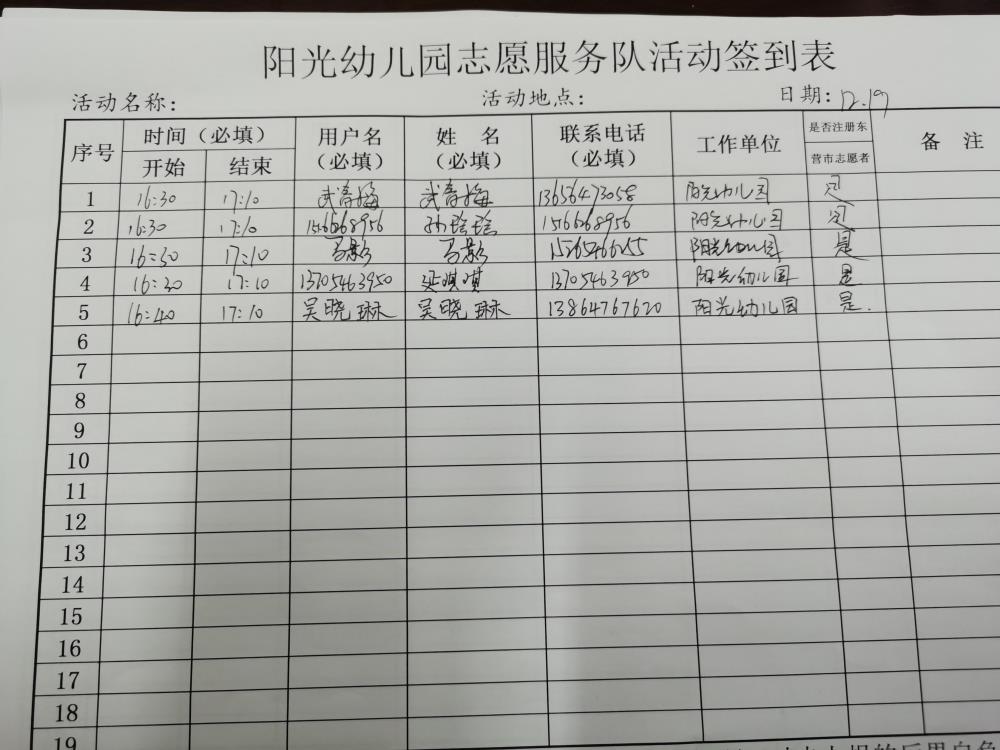 阳光幼儿园志愿服务队活动签到表
活动名称: 活动地点: 日期: 12.19
序号 时间(必填) 用户名(必填) 姓名(必填) 联系电话(必填) 工作单位 是否注册东营市志愿者 备注
开始 结束
1 16:30 17:10 武春梅 武春梅 13656473058 阳光幼儿园 是
2 16:30 17:10 阳光幼儿园 是
3 16:30 17:10 马影 马影 阳光幼儿园 是
4 16:30 17:10 13705463950 延琪琪 13705463950 阳光幼儿园 是
5 16:40 17:10 吴晓琳 吴晓琳 13864767620 阳光幼儿园 是.
6
7
8
9
10
11
12
13
14
15
16
17
18
19